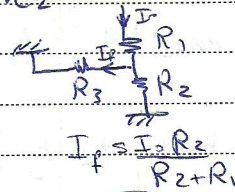 I
R₁
I_f
R₃
R₂
I_f = I . R₂ / R₂ + R₁